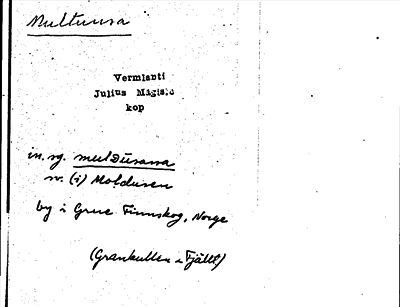 Multuusa
Vermlanti
Julius Mägiste
kop
in. sg. mulDūsassa
sv. (i) Moldusen
by i Grue Finnskog, Norge
(Grankullen i Fjällt)